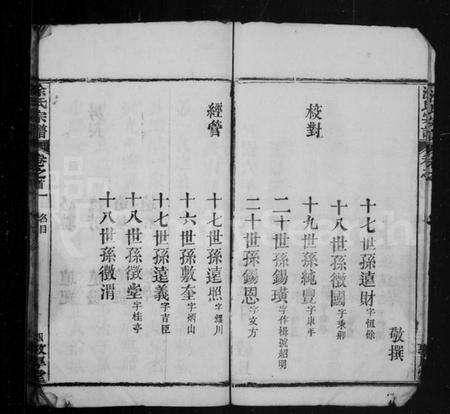 十七世孫遠財字恆餘
敬撰
十八世孫徵國字秉卿
校對
十九世孫純豐字康平
二十世孫錫璜字作楫號紹明
二十世孫錫恩字文方
經營
十七世孫遠照字耀川
十六世孫敷奎字炳山
十七世孫遠義字吉臣
十八世孫徵堂字桂亭
十八世孫徵渭
涂氏宗譜
卷之首
名目
敦厚堂